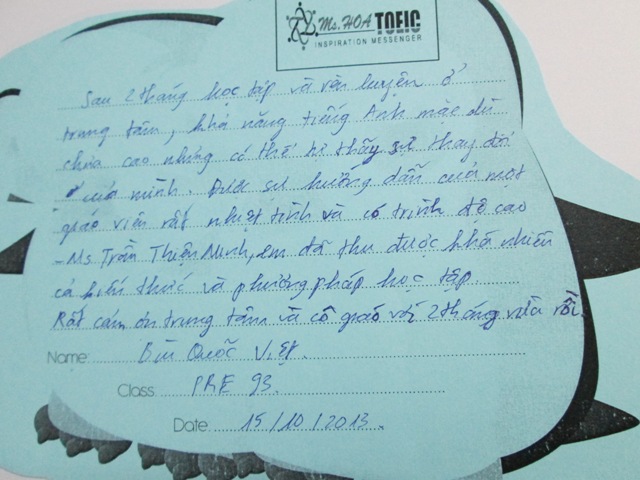 Ms. HOA TOEIC
INSPIRATION MESSENGER
Sau 2 tháng học tập và rèn luyện ở
trung tâm, khả năng tiếng Anh mặc dù
chưa cao nhưng có thể tự thấy sự thay đổi
của mình. Được sự hướng dẫn của một
giáo viên rất nhiệt tình và có trình độ cao
- Ms Trần Thiện Minh, em đã thu được khá nhiều
cả kiến thức và phương pháp học tập.
Rất cám ơn trung tâm và cô giáo với 2 tháng vừa rồi.
Name: Bùi Quốc Việt.
Class: PRE 93.
Date: 15/10/2013.